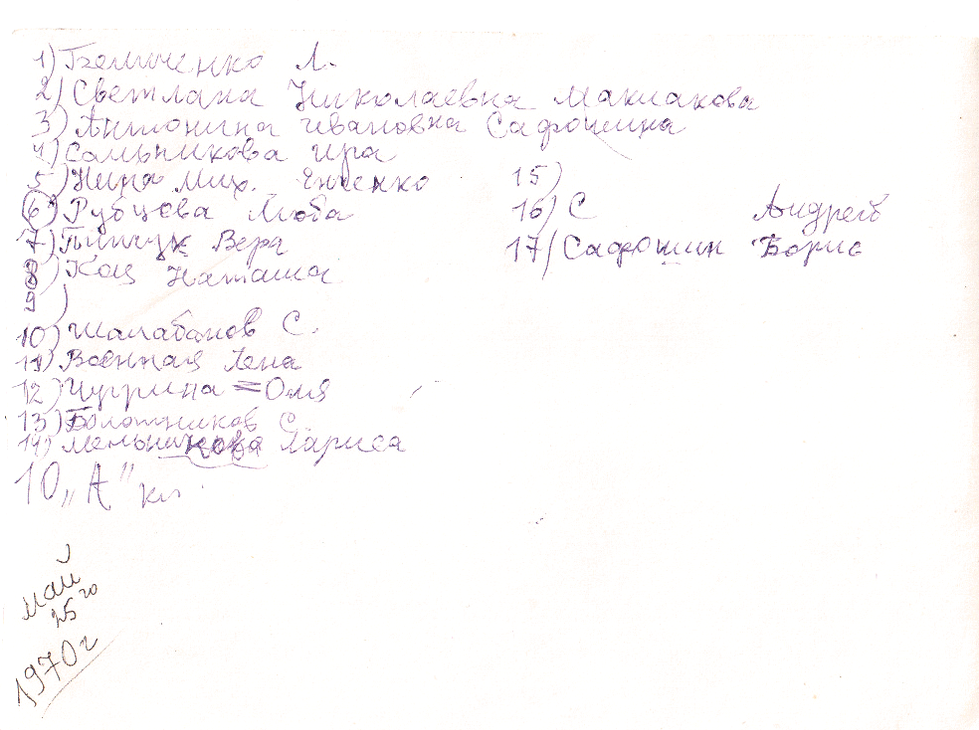 1) Беличенко Л.
2) Светлана Николаевна Маклакова
3) Антонина Ивановна Сафошина
4) Сальникова Ира
5) Нина Мих.
6) Рубцова Люба
7) Пинчук Вера
8) Кац Наташа
9)
10) Шалабанов С.
11) Военная Лена
12) Чуприна = Оля
13) Болотников С.
14) Мельникова Лариса
15)
16) С Андрей
17) Сафошин Борис
10 „А" кл.
май
25го
1970г